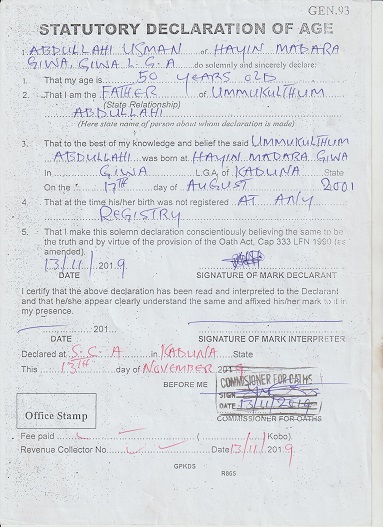 GEN.93
STATUTORY DECLARATION OF AGE
I ABDULLAHI USMAN of HAYIN MADARA
GIWA, GIWA L.G.A do solemnly and sincerely declare:
1. That my age is 50 YEARS OLD
2. That I am the FATHER of UMMUKULTHUM
(State Relationship)
ABDULLAHI
(Here state name of person about whom declaration is made)
3. That to the best of my knowledge and belief the said UMMUKULTHUM
ABDULLAHI was born at HAYIN MADARA GIWA
In GIWA L.G.A. of KADUNA State
On the 17TH day of AUGUST 2001
4. That at the time his/her birth was not registered AT ANY
REGISTRY
5. That I make this solemn declaration conscientiously believing the same to be
the truth and by virtue of the provision of the Oath Act, Cap 333 LFN 1990 (as
amended).
13/11/ 2019
DATE SIGNATURE OF MARK DECLARANT
I certify that the above declaration has been read and interpreted to the Declarant
and that he/she appear clearly understand the same and affixed his/her mark to it in
my presence.
201
DATE SIGNATURE OF MARK INTERPRETER
Declared at S.C.A in KADUNA State
This 13TH day of NOVEMBER 2019
BEFORE ME
COMMISSIONER FOR OATHS
SIGN
DATE 13/11/2019
COMMISSIONER FOR OATHS
Office Stamp
Fee paid ( Kobo)
Revenue Collector No. Date 13/11/ 2019
GPKDS
R865